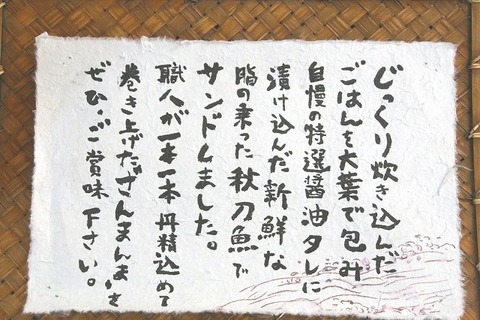 じっくり炊き込んだ
ごはんを大葉で包み
自慢の特選醤油タレに
漬け込んだ新鮮な
脂の乗った秋刀魚で
サンドしました。
職人が一本一本丹精込めて
巻き上げた“さんまんま”を
ぜひ、ご賞味下さい。